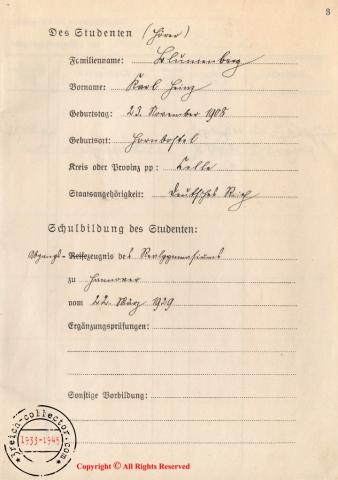 3
Des Studenten (Hörer)
Familienname: Blumenberg
Vorname: Karl Heinz
Geburtstag: 23. November 1908
Geburtsort: Hornbostel
Kreis oder Provinz pp: Celle
Staatsangehörigkeit: Deutsches Reich
Schulbildung des Studenten:
Abgangs-Reifezeugnis des Realgymnasiums
zu Hannover
vom 22. März 1929
Ergänzungsprüfungen:
Sonstige Vorbildung:
3reich-collector.com
1933-1945
Copyright © All Rights Reserved